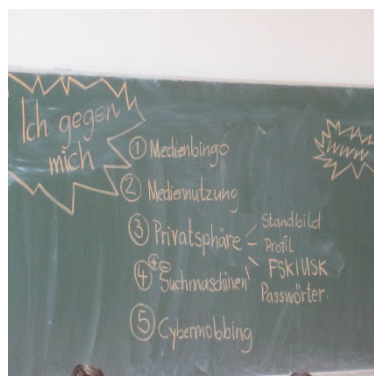 Ich gegen
mich
① Medienbingo
② Mediennutzung
③ Privatsphäre
Standbild
Profil
FSK/USK
Passwörter
④ Suchmaschinen
⑤ Cybermobbing